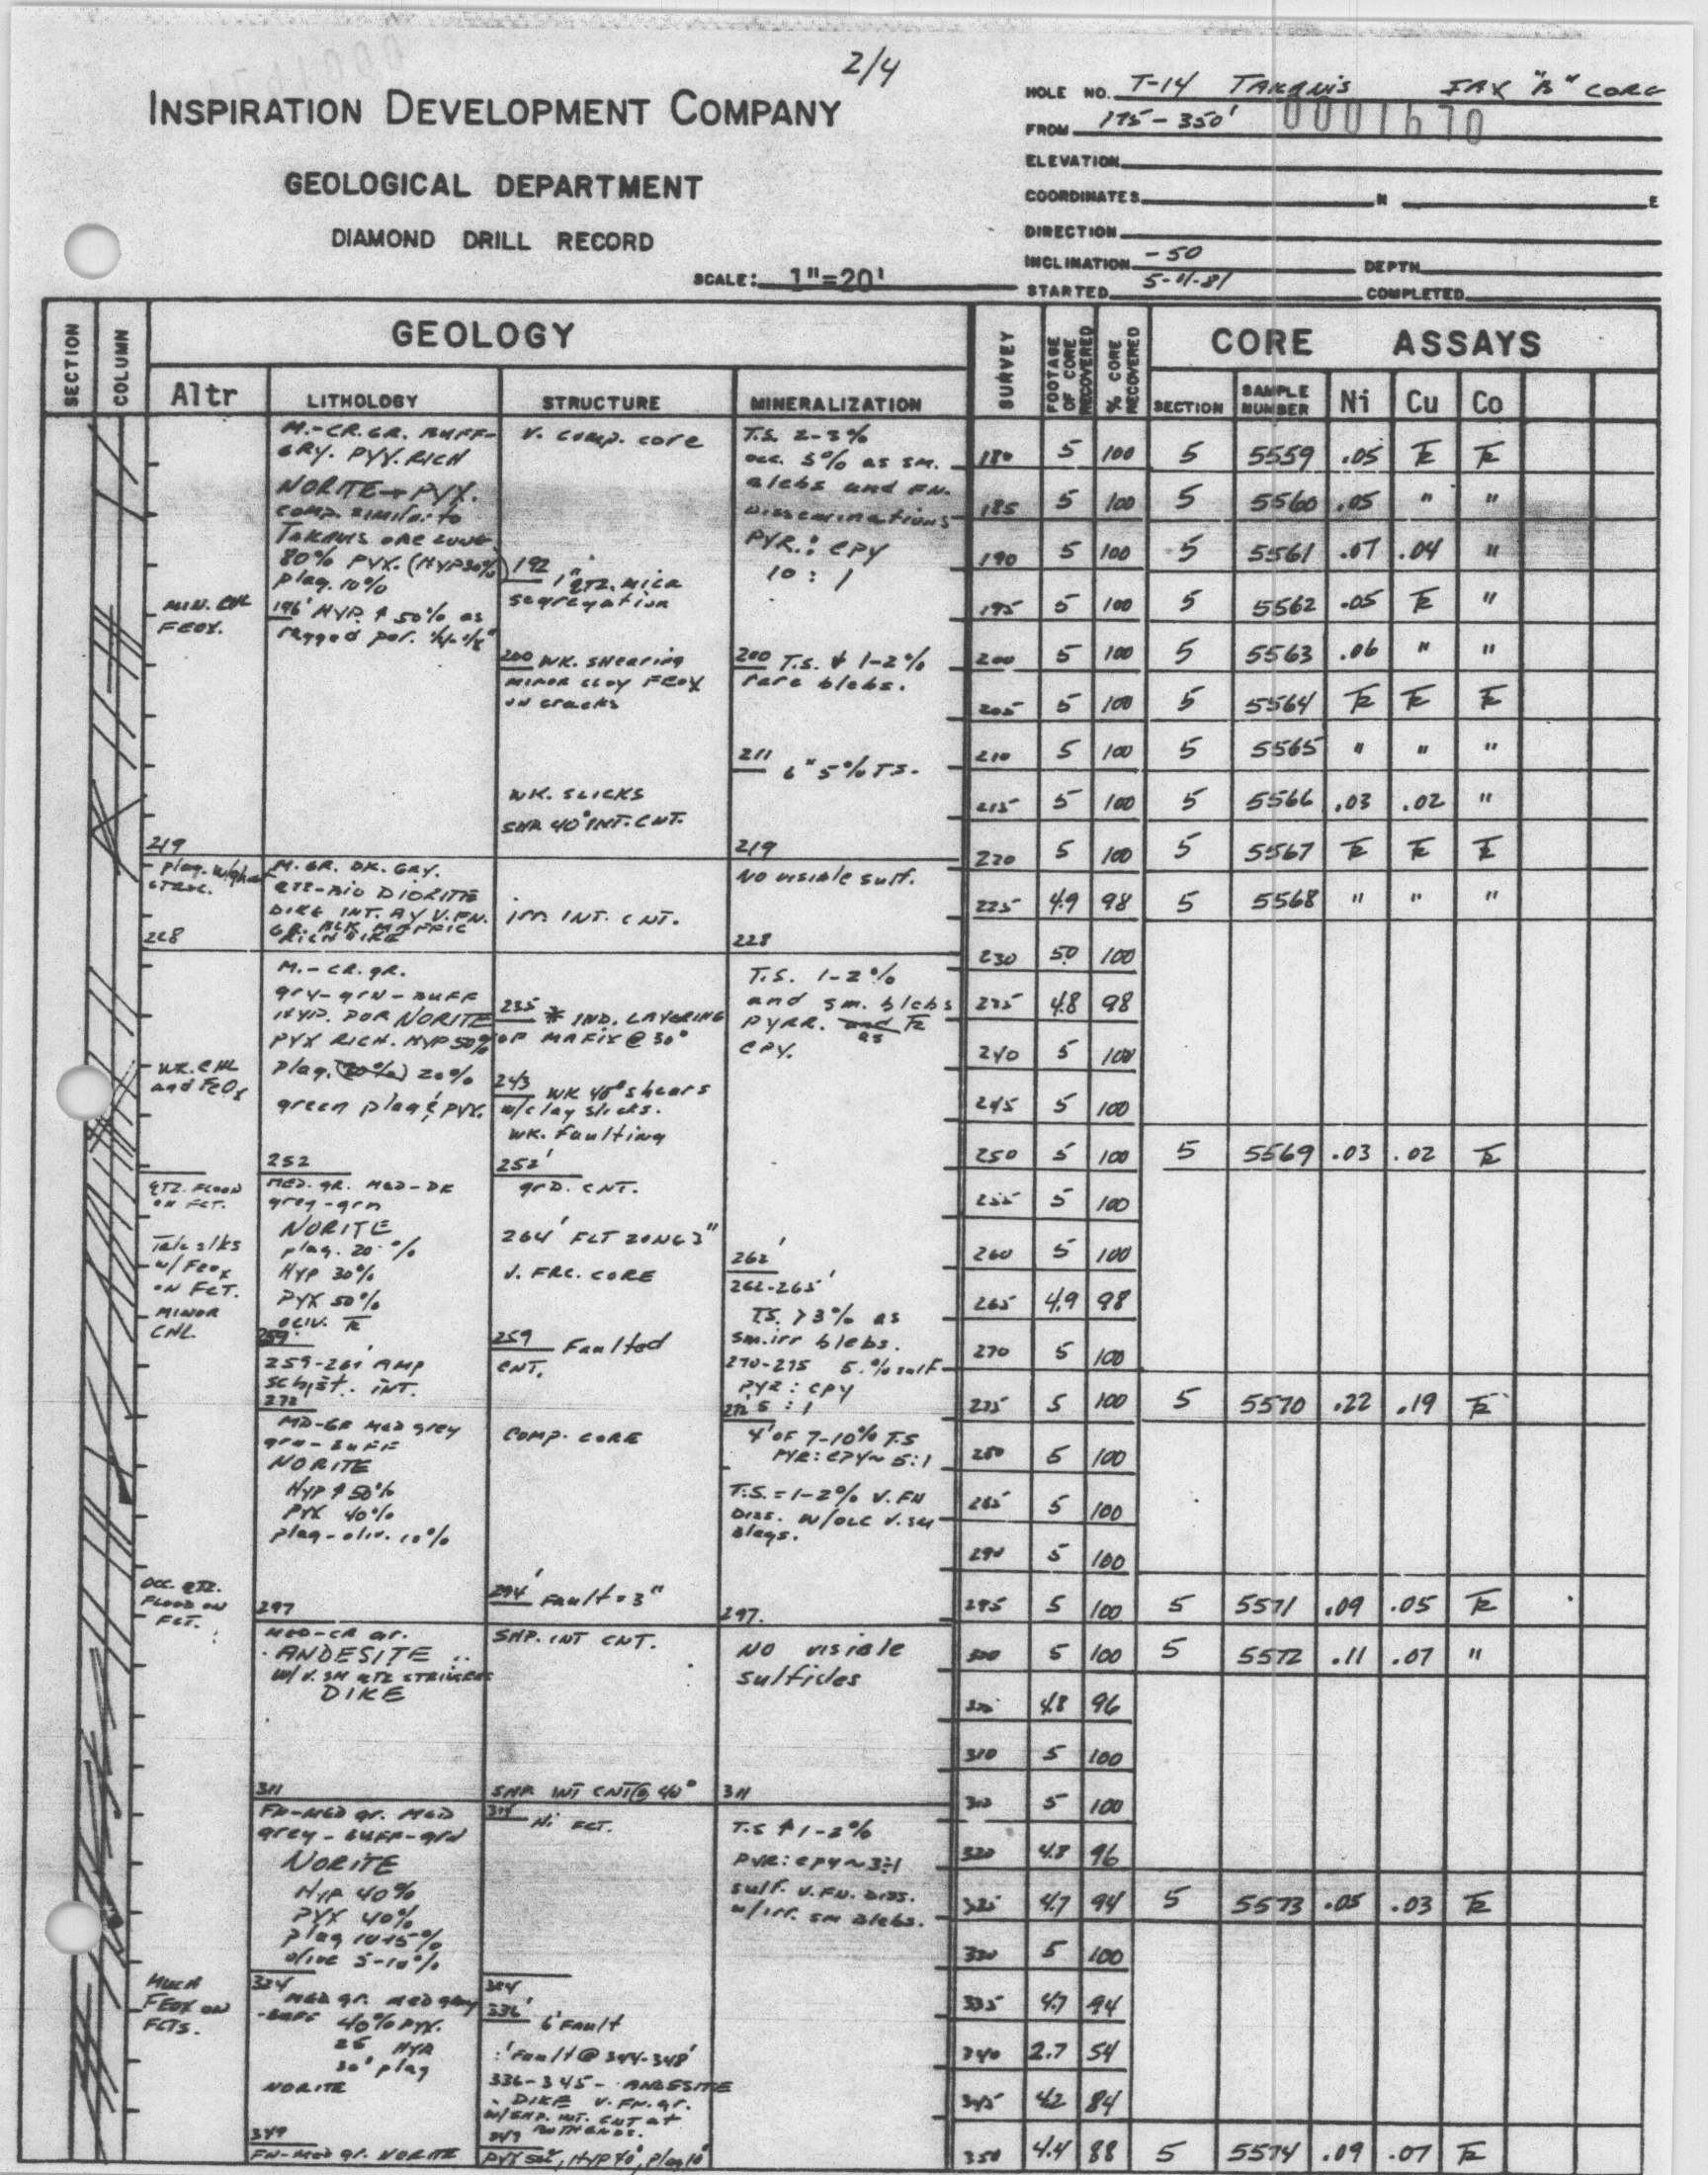 2/4
INSPIRATION DEVELOPMENT COMPANY
GEOLOGICAL DEPARTMENT
DIAMOND DRILL RECORD
SCALE: 1"=20'
HOLE NO. T-14 TAKANIS IAX "B" CORE
FROM 175-350' 0001670
ELEVATION
COORDINATES N E
DIRECTION
INCLINATION -50 DEPTH
STARTED 5-11-81 COMPLETED
SECTION COLUMN GEOLOGY SURVEY FOOTAGE OF CORE RECOVERED % CORE RECOVERED CORE ASSAYS
Altr LITHOLOGY STRUCTURE MINERALIZATION SECTION SAMPLE NUMBER Ni Cu Co
M.-CR.GR. BUFF-
GRY. PYX. RICH
NORITE→PYX.
comp. similar to
Takanis ore zone
80% PYX. (HYP 30%)
plag. 10%
196' HYP. ↑ 50% as
ragged por.
MIN. CHL
FEOX.
V. comp. core
192 1" QTZ. mica
segregation
200 WK. shearing
minor clay FEOX
on cracks
WK. SLICKS
SHR 40° INT. CNT.
T.S. 2-3%
occ. 5% as sm.
blebs and FN.
Disseminations
PYR.: CPY
10 : 1
200 T.S. ↓ 1-2%
rare blebs.
211 6" 5% T.S.
219
219
plag. w/ghost
struc.
M. GR. DK. GRY.
QTZ-BIO DIORITE
DIKE INT. BY V. FN.
GR. BLK MAFFIC
RICH DIKE
irr INT. CNT.
No visible sulf.
228
228
M.-CR.gR.
gry-grn-BUFF
HYP. POR NORITE
PYX RICH. HYP 50%
plag. (30%) 20%
green plag & PYX.
WK. CHL
and FeOx
235 * IND. LAYERING
OF MAFIX @ 30°
243 WK 45° shears
w/clay slicks.
WK. Faulting
T.S. 1-2%
and sm. blebs
PYRR. and TR
as
CPY.
252
252'
QTZ. FLOOD
ON FCT.
Talc slks
w/ Feox
on FCT.
MINOR
CHL.
MED. gR. MED-DK
grey-grn
NORITE
plag. 20%
HYP 30%
PYX 50%
OLIV. TR
259
259-261' AMP
schist. INT.
grD. CNT.
264' FLT ZONE 3"
V. FRC. CORE
259 Faulted
CNT.
262'
262-265'
T.S. >3% as
sm. irr blebs.
270-275 5% sulf
PYR : CPY
5 : 1
272
272
MD-GR MED grey
grn-BUFF
NORITE
HYP ↑ 50%
PYX 40%
plag-oliv. 10%
COMP. CORE
294' Fault 3"
4' OF 7-10% T.S
PYR: CPY~ 5:1
T.S. = 1-2% V. FN
Diss. w/occ v. sm
blegs.
OCC. QTZ.
FLOOD ON
FCT.
297
297.
MED-CR gr.
ANDESITE
w/ V. SM QTZ STRINGERS
DIKE
SHP. INT CNT.
NO visible
sulfides
311
SHP INT CNT @ 40°
311
FN-MED gr. MED
grey-BUFF-grn
NORITE
HYP 40%
PYX 40%
plag 10-15%
olive 5-10%
314 Hi FCT.
T.S ↑ 1-2%
PYR: CPY ~ 3:1
sulf. V. FN. DISS.
w/irr. sm blebs.
MUCH
FEOX ON
FCTS.
334
MED gr. med grey
-BUFF 40% PYX.
25 HYP
30' plag
NORITE
334
336' 6' Fault
1' Fault @ 344-348'
336-345- ANDESITE
DIKE V. FN. gr.
w/SHP. INT. CNT at
BOTH ENDS.
349
349
FN-MED gr. NORITE
PYX 50%, HYP 40', plag 10'
180 5 100 5 5559 .05 TR TR
185 5 100 5 5560 .05 " "
190 5 100 5 5561 .07 .04 "
195 5 100 5 5562 .05 TR "
200 5 100 5 5563 .06 " "
205 5 100 5 5564 TR TR TR
210 5 100 5 5565 " " "
215 5 100 5 5566 .03 .02 "
220 5 100 5 5567 TR TR TR
225 4.9 98 5 5568 " " "
230 50 100
235 4.8 98
240 5 100
245 5 100
250 5 100 5 5569 .03 .02 TR
255 5 100
260 5 100
265 4.9 98
270 5 100
275 5 100 5 5570 .22 .19 TR
280 5 100
285 5 100
290 5 100
295 5 100 5 5571 .09 .05 TR
300 5 100 5 5572 .11 .07 "
305 4.8 96
310 5 100
315 5 100
320 4.8 96
325 4.7 94 5 5573 .05 .03 TR
330 5 100
335 4.7 94
340 2.7 54
345 4.2 84
350 4.4 88 5 5574 .09 .07 TR